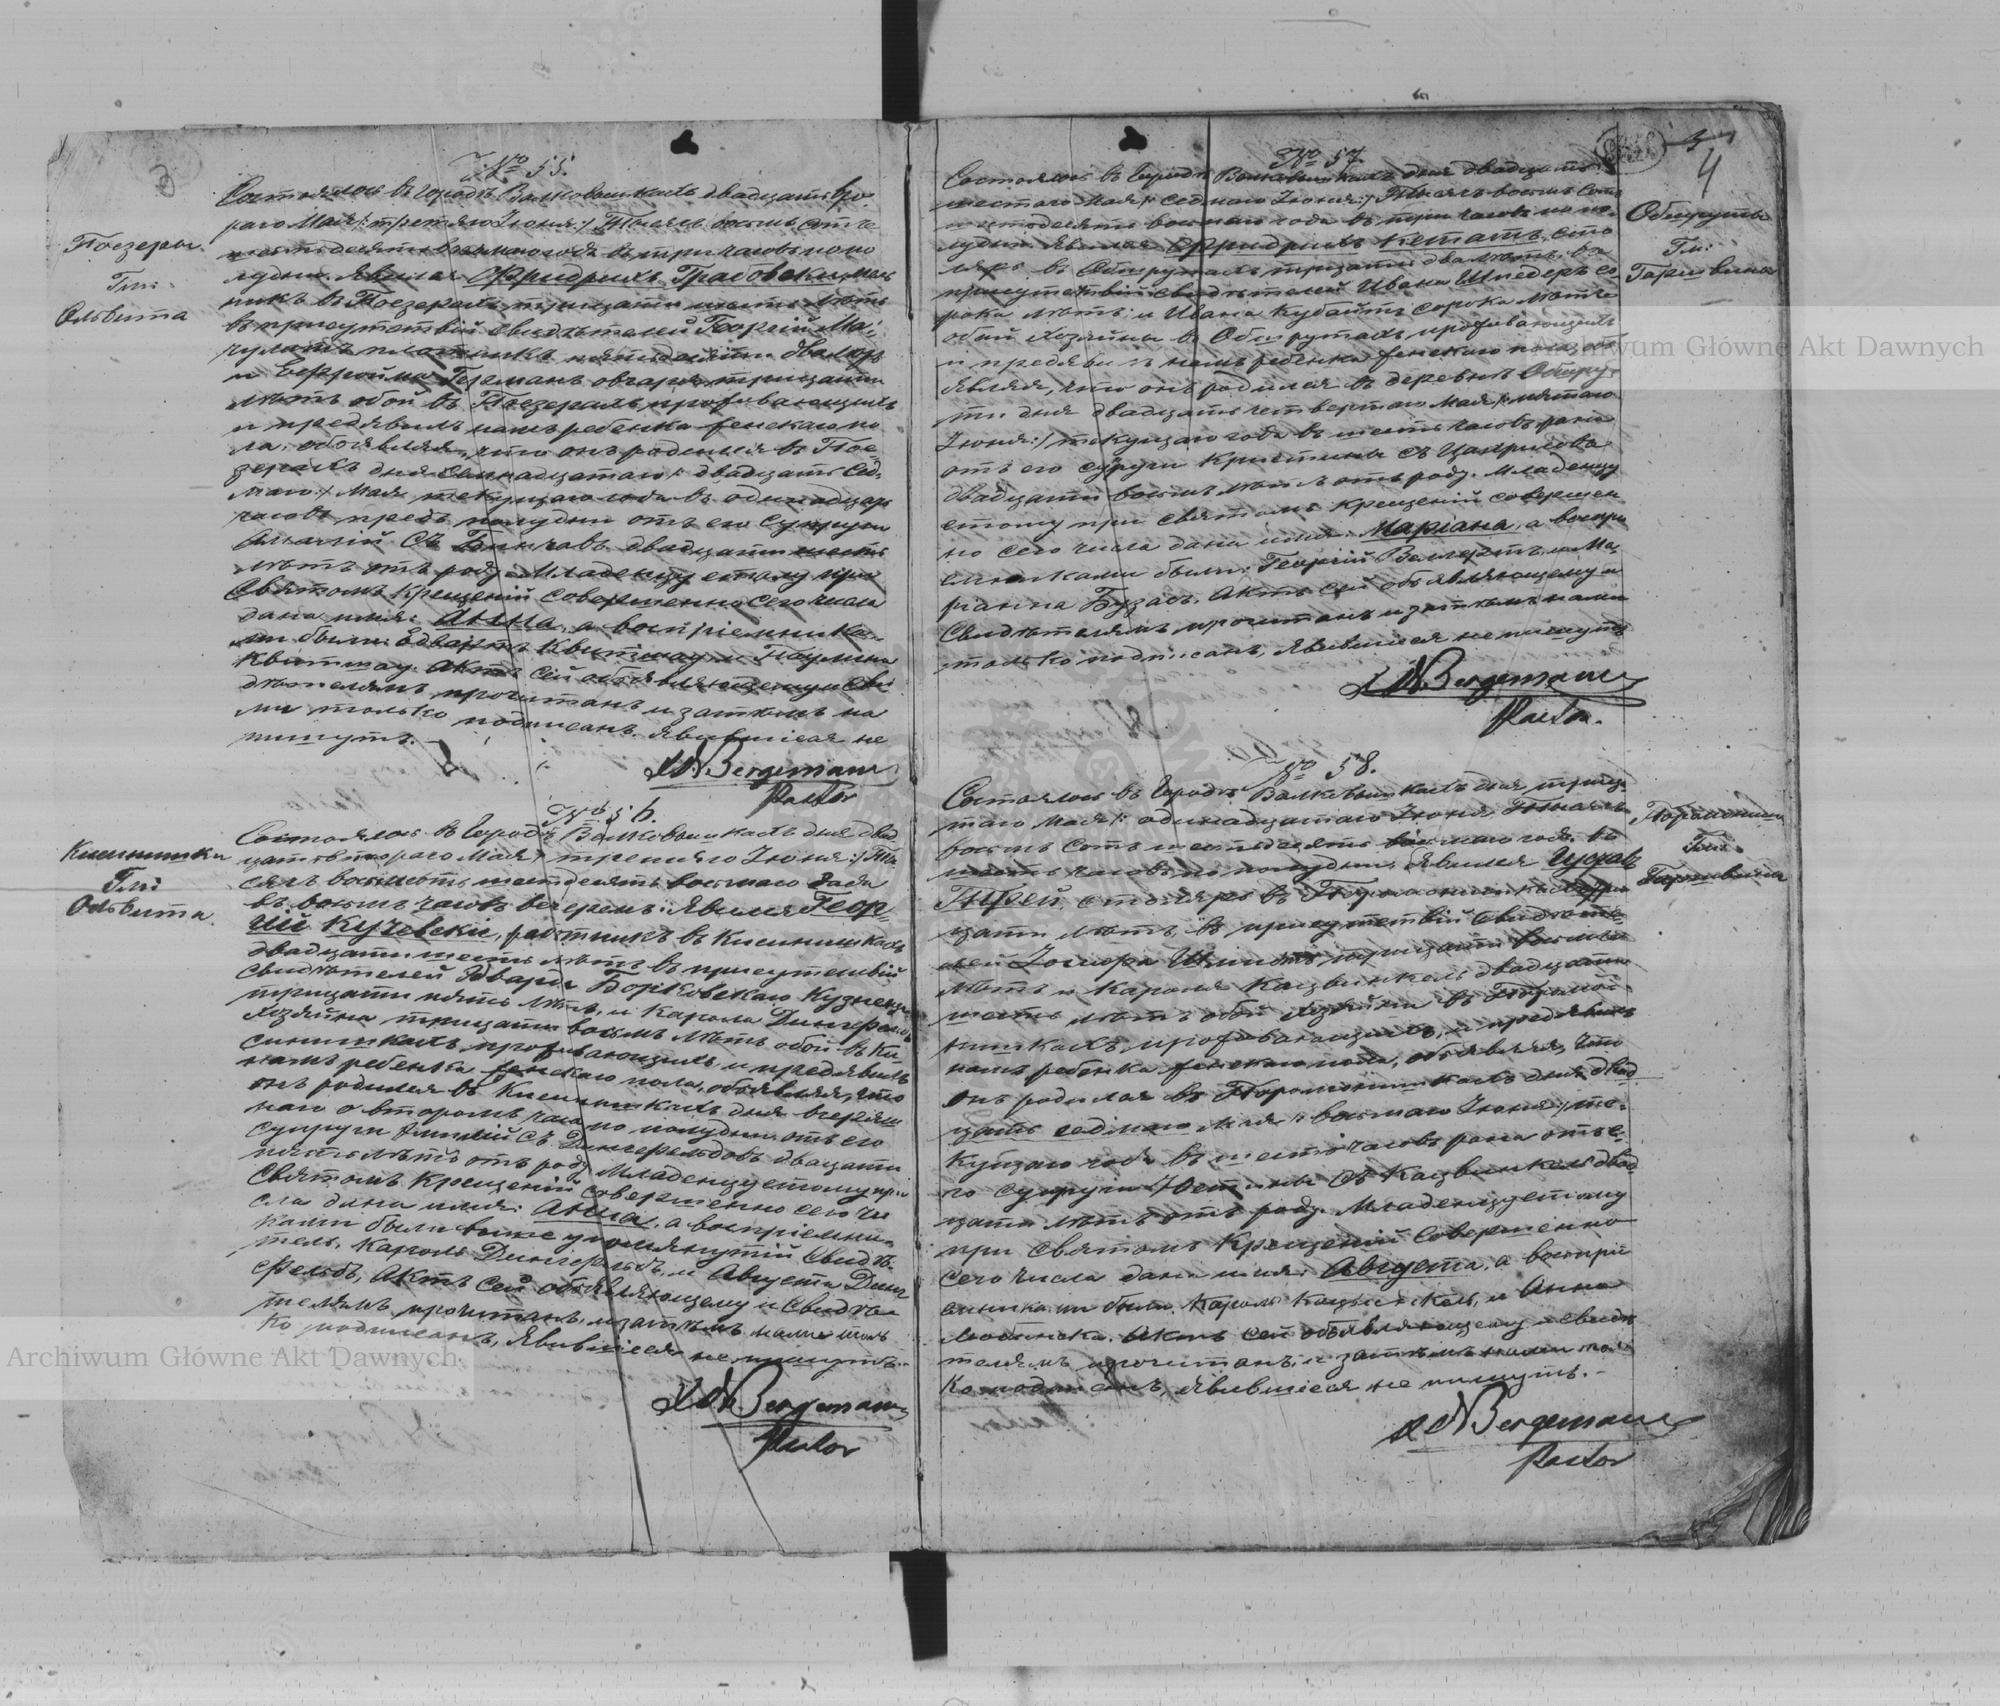 № 55.
Поезеры.
Гми:
Ольвита
Состоялось въ городѣ Волковышкахъ двадцать вто-
раго Мая /: третяго Іюня :/ Тысяча восемь сотъ
шестьдесятъ восьмаго года въ три часовъ попо
лудни. Явился Фридрихъ Грабовски,
никъ въ Поезерахъ, тридцати шесть лѣтъ
въ присутствіи свидѣтелей Георгій
пятьдесяти два
и Германъ овчаря тридцати
лѣтъ обой въ Поезерахъ, проживающихъ
и предявилъ намъ ребенка женскаго по
ла, объявляя, что онъ родился въ Пое-
зерахъ дня Семнадцатаго /: двадцать Сед-
маго :/ Мая текущаго года въ одинадцать
часовъ предъ полудни отъ его Супруги
Амалій съ двадцати шесть
лѣтъ отъ роду. Младенцу етому при
Святомъ Крещеній совершенно сего числа
дана имя: Анна, а воспріемника-
ми были: Едвардъ Квитшау и Паулина
Квитшау. Актъ сей объявляющему и Сви
дѣтелямъ прочитанъ и затѣмъ на
ми только подписанъ. Явившіеся не
пишутъ.
Bergemann
Pastor
№ 56.
Кисинишки
Гми:
Ольвита
Состоялось въ Городѣ Волковышкахъ дня двад
цать втораго Мая /: третяго Іюня :/ Ты
сяча восемьсотъ шестдесятъ восьмаго года
въ восемь часовъ вечеромъ. Явился Геор-
гій Кучевски, работникъ въ Кисинишкахъ
двадцати шесть лѣтъ въ присутствій
свидѣтелей Эварда Борковскаго Кузнеца
тридцати пять лѣтъ, и Карола
Хозяина тридцати восемь лѣтъ обой въ Ки-
синишкахъ, проживающихъ и предявилъ
намъ ребенка женскаго пола, объявляя, что
онъ родился въ Кисинишкахъ дня вчерѣш
наго о второмъ часа по полудни отъ его
супруги Амилій съ Дингерфельдовъ двацати
пять лѣтъ отъ роду. Младенцу етому при
Святомъ Крещеній совершенно сего чи
сла дана имя: Анна, а воспріемни-
ками были выше упомянутій Свидѣ-
тель, Кароль и Августа Динг
фельдъ, Актъ сей объявляющему и Свидѣ-
телямъ прочитанъ, и затѣмъ нами толь
ко подписанъ, Явившіеся не пишутъ.
Bergemann
Pastor
4
№ 57.
Обшруты
Гми:
Гаршвина
Состоялось въ Городѣ Волковышкахъ дня двадцать
шестаго Мая /: седмаго Іюня :/ Тысяча восемь сотъ
шестдесятъ восьмаго года въ три часовъ по по-
лудни. Явился Фридрихъ Кетатъ, сто
ляръ въ Обшрутахъ тридцати два лѣтъ, въ
присутствій свидѣтелей Ивана Шнедеръ со
рока лѣтъ, и Ивана Кубайтъ сорока лѣтъ
обой хозяйны въ Обшрутахъ, проживающихъ
и предявилъ намъ ребенка женскаго пола, объ
являя, что онъ родился въ деревнѣ Обшру-
ты дня двадцать четвертаго Мая /: пятаго
Іюня :/ текущаго года въ шесть часовъ рана
отъ его супруги Кристины съ
двадцати восемь лѣтъ отъ роду. Младенцу
етому при святомъ Крещеній совершен
но сего числа дана имя: Маріана, а воспрі
емниками были: Георгій и Ма-
ріанна Актъ сей объявляющему и
Свидѣтелямъ прочитанъ и затѣмъ нами
только подписанъ, Явившіеся не пишутъ
Bergemann
Pastor.
№ 58.
Гми:
Гаршвина
Состоялось въ Городѣ Волковышкахъ дня тридц-
таго Мая /: одинадцатаго Іюня, Тысяча
восемь Сотъ шестьдесятъ восьмаго года въ
шесть часовъ по полудни. Явился Густав
столяръ въ три
цати лѣтъ, въ присутствій Свидѣте-
лей Шмидтъ тридцати восемь
лѣтъ и Кароля Кацвинкель двадцати
шесть лѣтъ обой Хозяйна въ
нишкахъ, проживающихъ, и предявилъ
намъ ребенка женскаго пола, объявляя, что
онъ родился въ дня двад
цать седмаго Мая /: восьмаго Іюня :/ те-
кущаго года въ шесть часовъ рана отъ е-
го супруги Юстины съ Кацвинкель двад
цати лѣтъ отъ роду. Младенцу етому
при святомъ Крещеній совершенно
сего числа дана имя: Августа, а воспрі
емниками были: Кароль Кацвинкель, и Анна
Актъ сей объявляющему и свидѣ
телямъ прочитанъ, и затѣмъ нами толь
ко подписанъ, Явившіеся не пишутъ.
Bergemann
Pastor
Archiwum Główne Akt Dawnych
Archiwum Główne Akt Dawnych